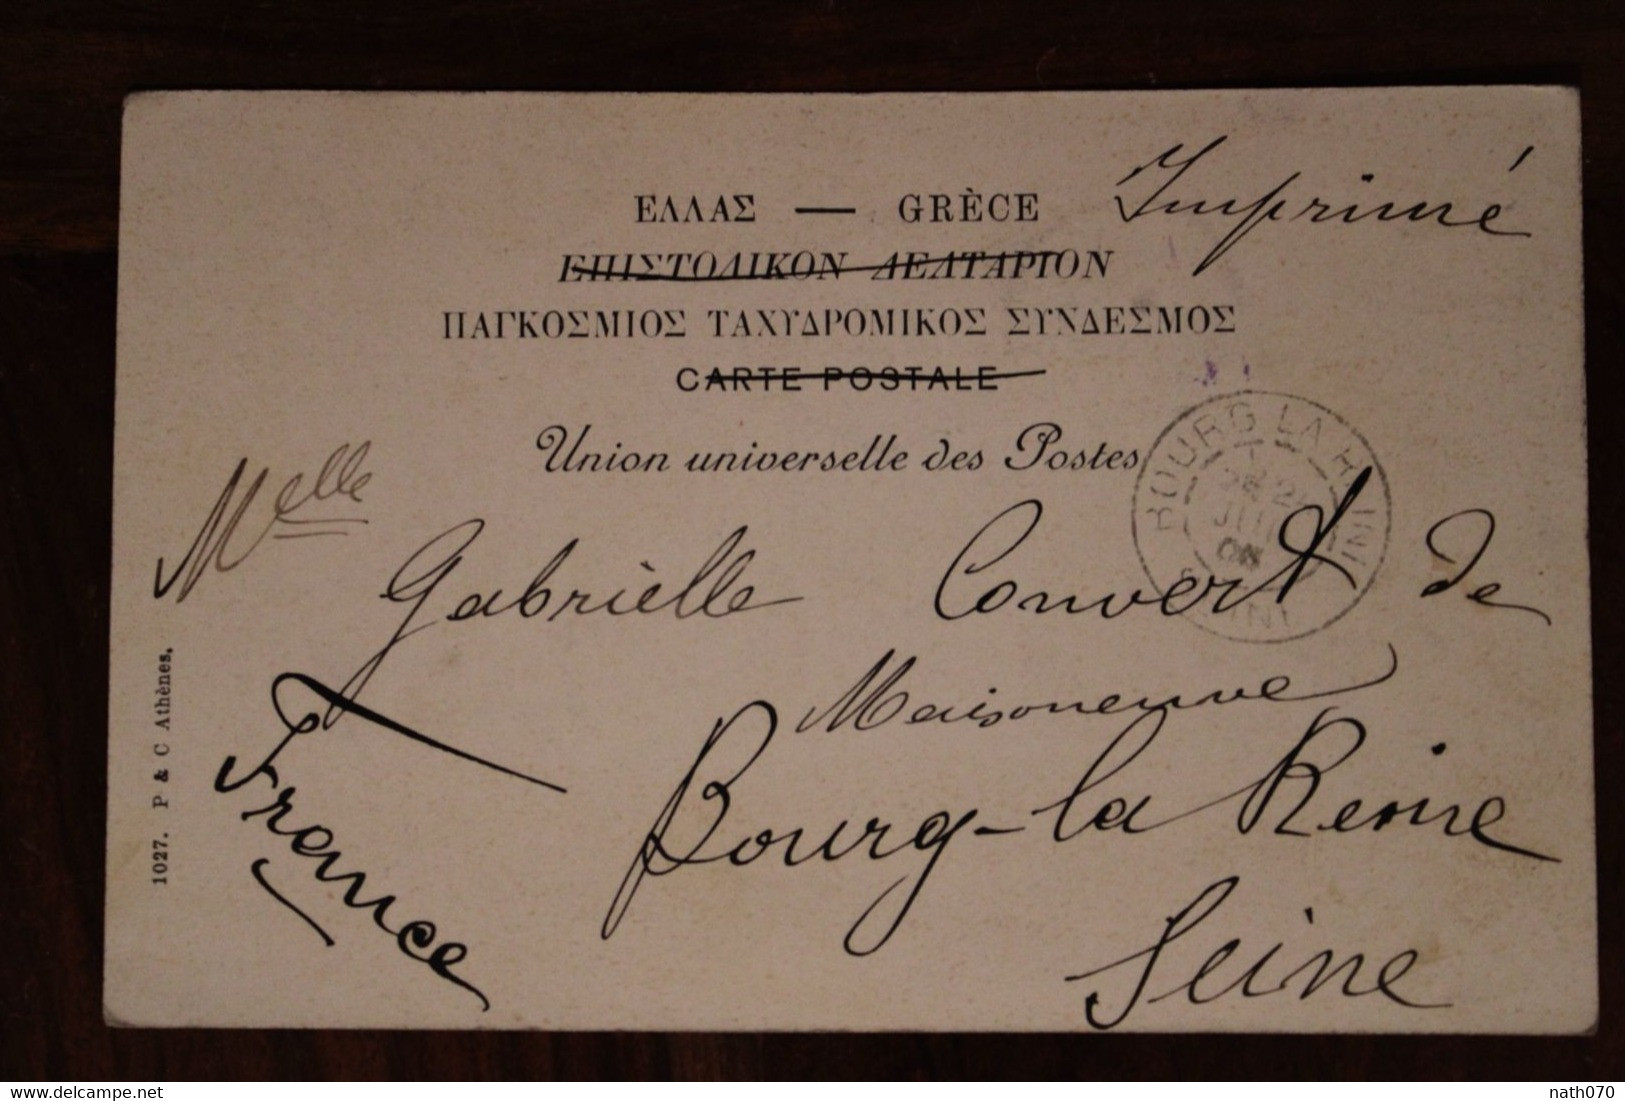 ΕΛΛΑΣ — GRÈCE
Imprimé
ΕΠΙΣΤΟΛΙΚΟΝ ΔΕΛΤΑΡΙΟΝ
ΠΑΓΚΟΣΜΙΟΣ ΤΑΧΥΔΡΟΜΙΚΟΣ ΣΥΝΔΕΣΜΟΣ
CARTE POSTALE
Union universelle des Postes
BOURG LA R
Melle
Gabrielle Convert de
Maisoneuve
Bourg-la Reine
Seine
France
1027. P & C Athènes.
delcampe.net
nath070